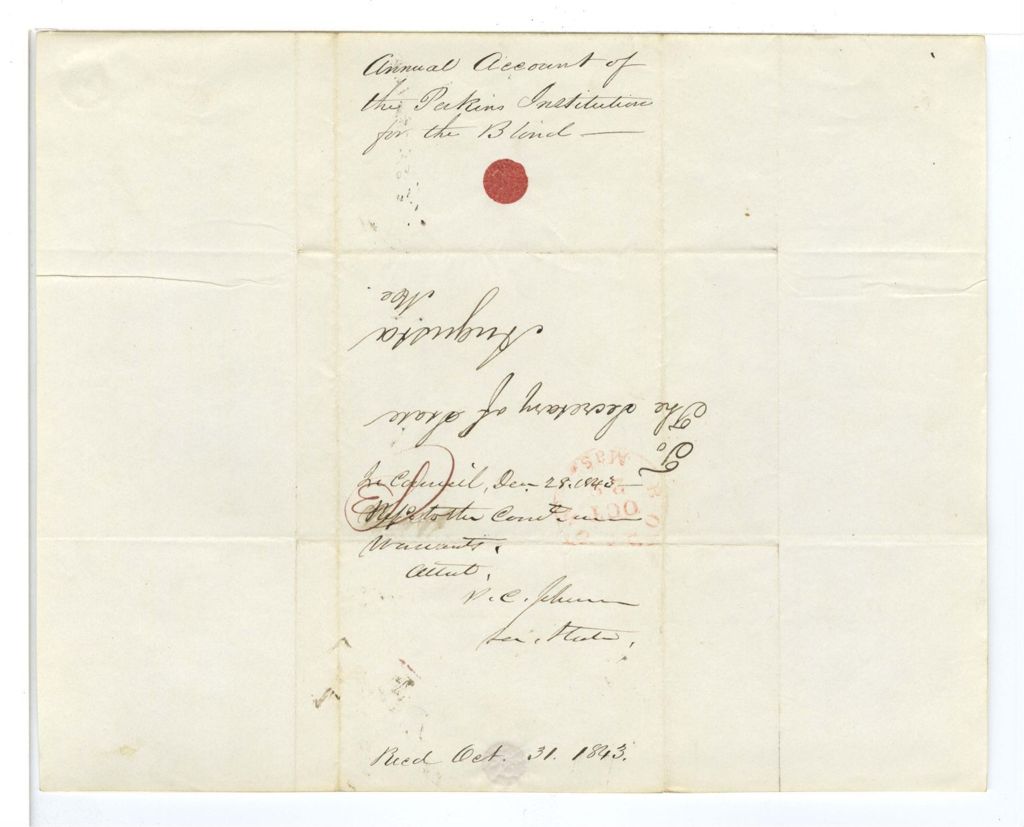 Annual Account of
the Perkins Institution
for the Blind —
To
The Secretary of State
Augusta
Me.
In Council, Dec. 28. 1843 —
Ref'd to the Com. on
Warrants.
Attest,
P. C. Johnson
Sec. State.
OCT
MAS
Recd Oct. 31. 1843.